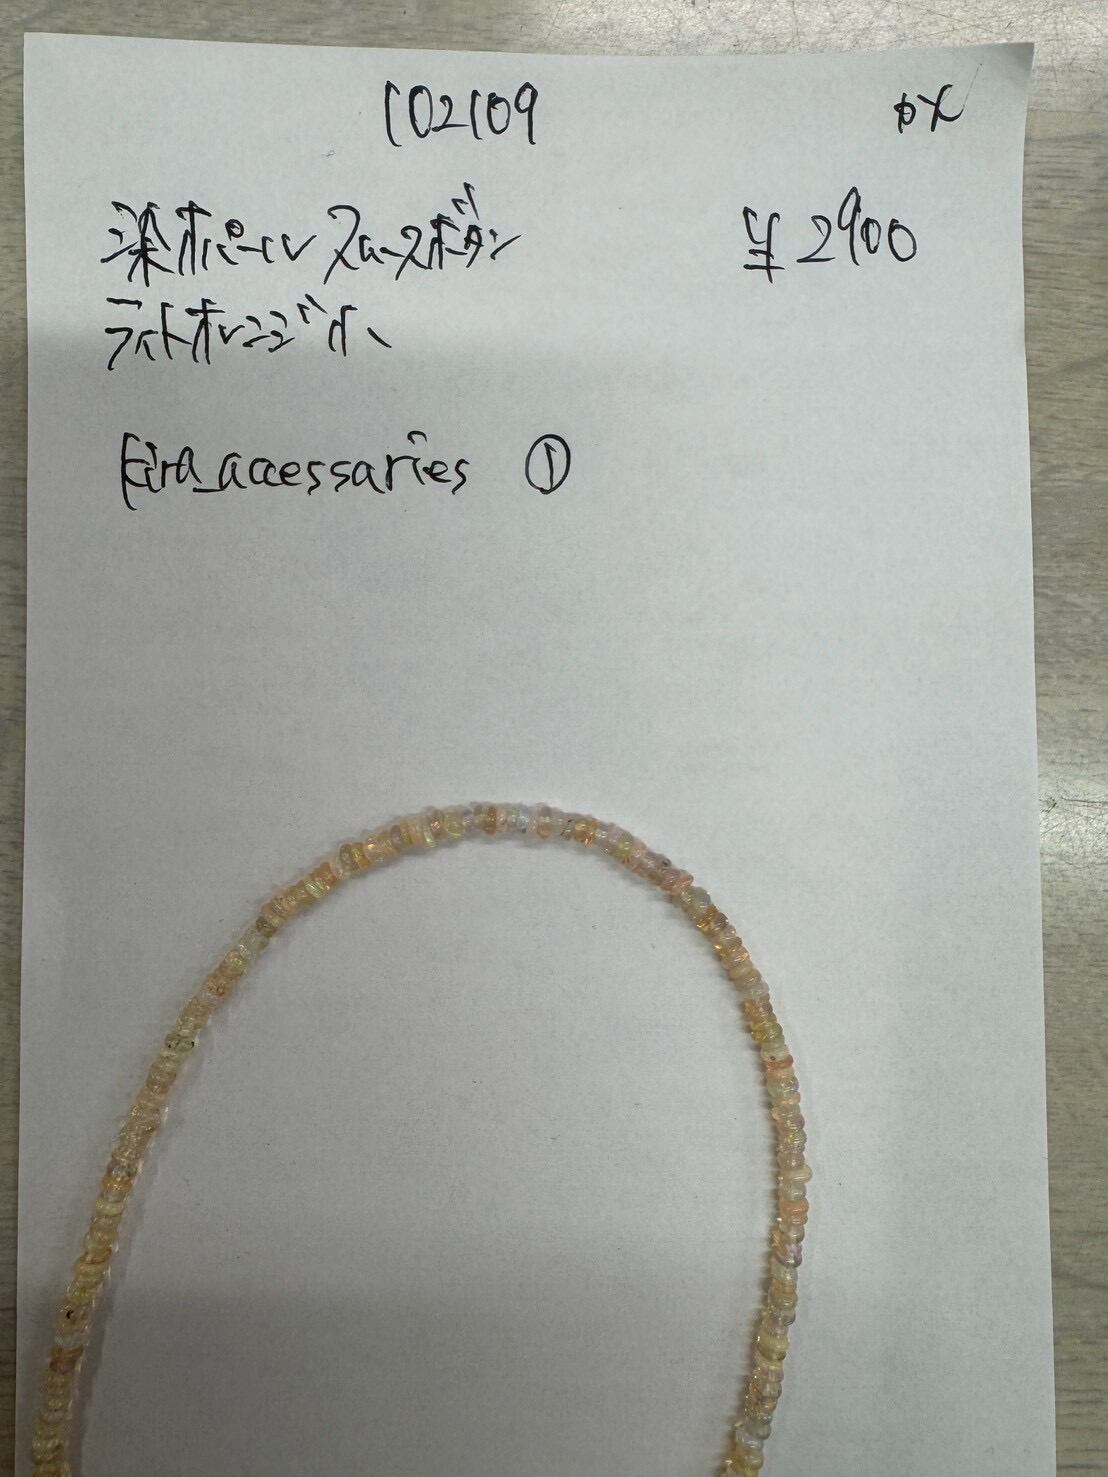 102109
染オパール スムースボタン ¥2900
ライトオレンジ
kira_accessaries ①